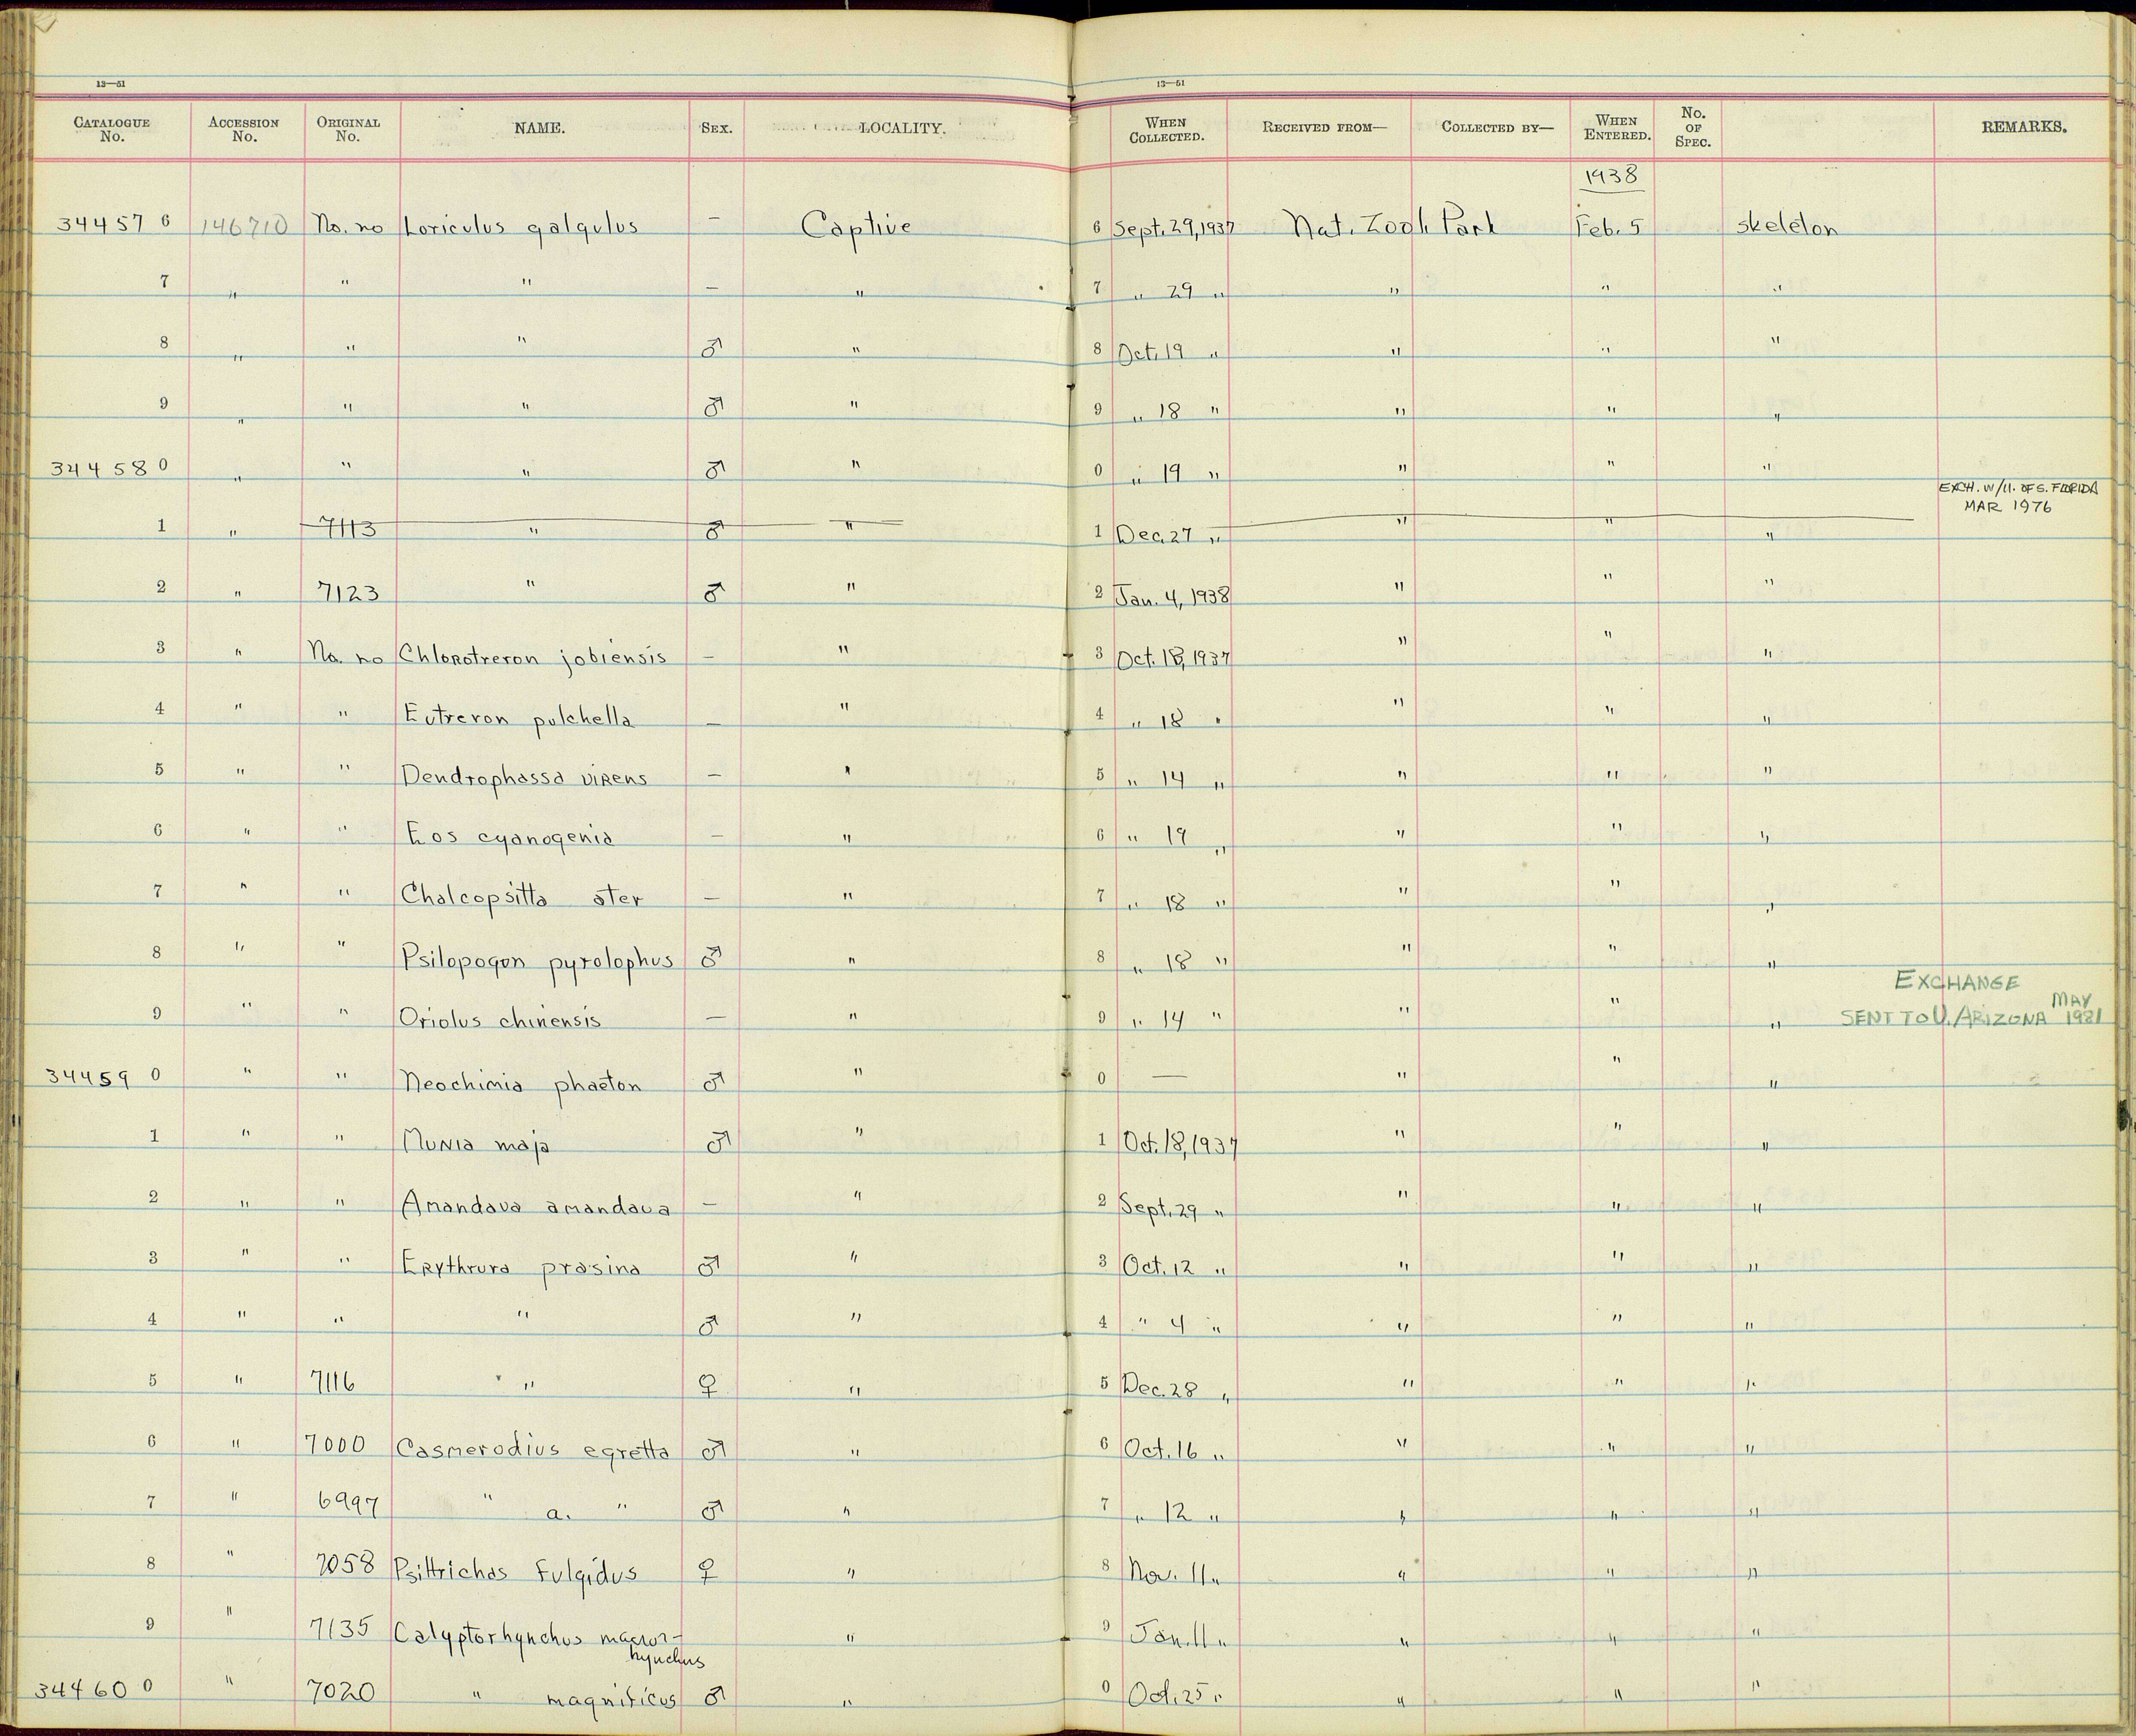 13—51 13—51
CATALOGUE No. ACCESSION No. ORIGINAL No. NAME. SEX. LOCALITY. WHEN COLLECTED. RECEIVED FROM— COLLECTED BY— WHEN ENTERED. No. OF SPEC. REMARKS.
1938
344576 146710 No. no Loriculus galgulus – Captive 6 Sept. 29, 1937 Nat. Zool. Park Feb. 5 skeleton
7 " " " – " 7 " 29 " " " "
8 " " " ♂ " 8 Oct. 19 " " " "
9 " " " ♂ " 9 " 18 " " " "
344580 " " " ♂ " 0 " 19 " " " "
EXCH. W/U. OF S. FLORIDA
MAR 1976
1 " 7113 " ♂ " 1 Dec. 27 " " " "
2 " 7123 " ♂ " 2 Jan. 4, 1938 " " "
3 " No. no Chlorotreron jobiensis – " 3 Oct. 18, 1937 " " "
4 " " Eutreron pulchella – " 4 " 18 " " " "
5 " " Dendrophassa virens – " 5 " 14 " " " "
6 " " Eos cyanogenia – " 6 " 19 " " " "
7 " " Chalcopsitta ater – " 7 " 18 " " " "
8 " " Psilopogon pyrolophus ♂ " 8 " 18 " " " "
EXCHANGE
9 " " Oriolus chinensis – " 9 " 14 " " " " SENT TO U. ARIZONA MAY 1981
344590 " " Neochimia phaeton ♂ " 0 — " " "
1 " " Munia maja ♂ " 1 Oct. 18, 1937 " " "
2 " " Amandava amandava – " 2 Sept. 29 " " " "
3 " " Erythrura prasina ♂ " 3 Oct. 12 " " " "
4 " " " ♂ " 4 " 4 " " " "
5 " 7116 " ♀ " 5 Dec. 28 " " " "
6 " 7000 Casmerodius egretta ♂ " 6 Oct. 16 " " " "
7 " 6997 " a. " ♂ " 7 " 12 " " " "
8 " 7058 Psittrichas fulgidus ♀ " 8 Nov. 11 " " " "
9 " 7135 Calyptorhynchus macror- " 9 Jan. 11 " " " "
hynchus
344600 " 7020 " magnificus ♂ " 0 Oct. 25 " " " "